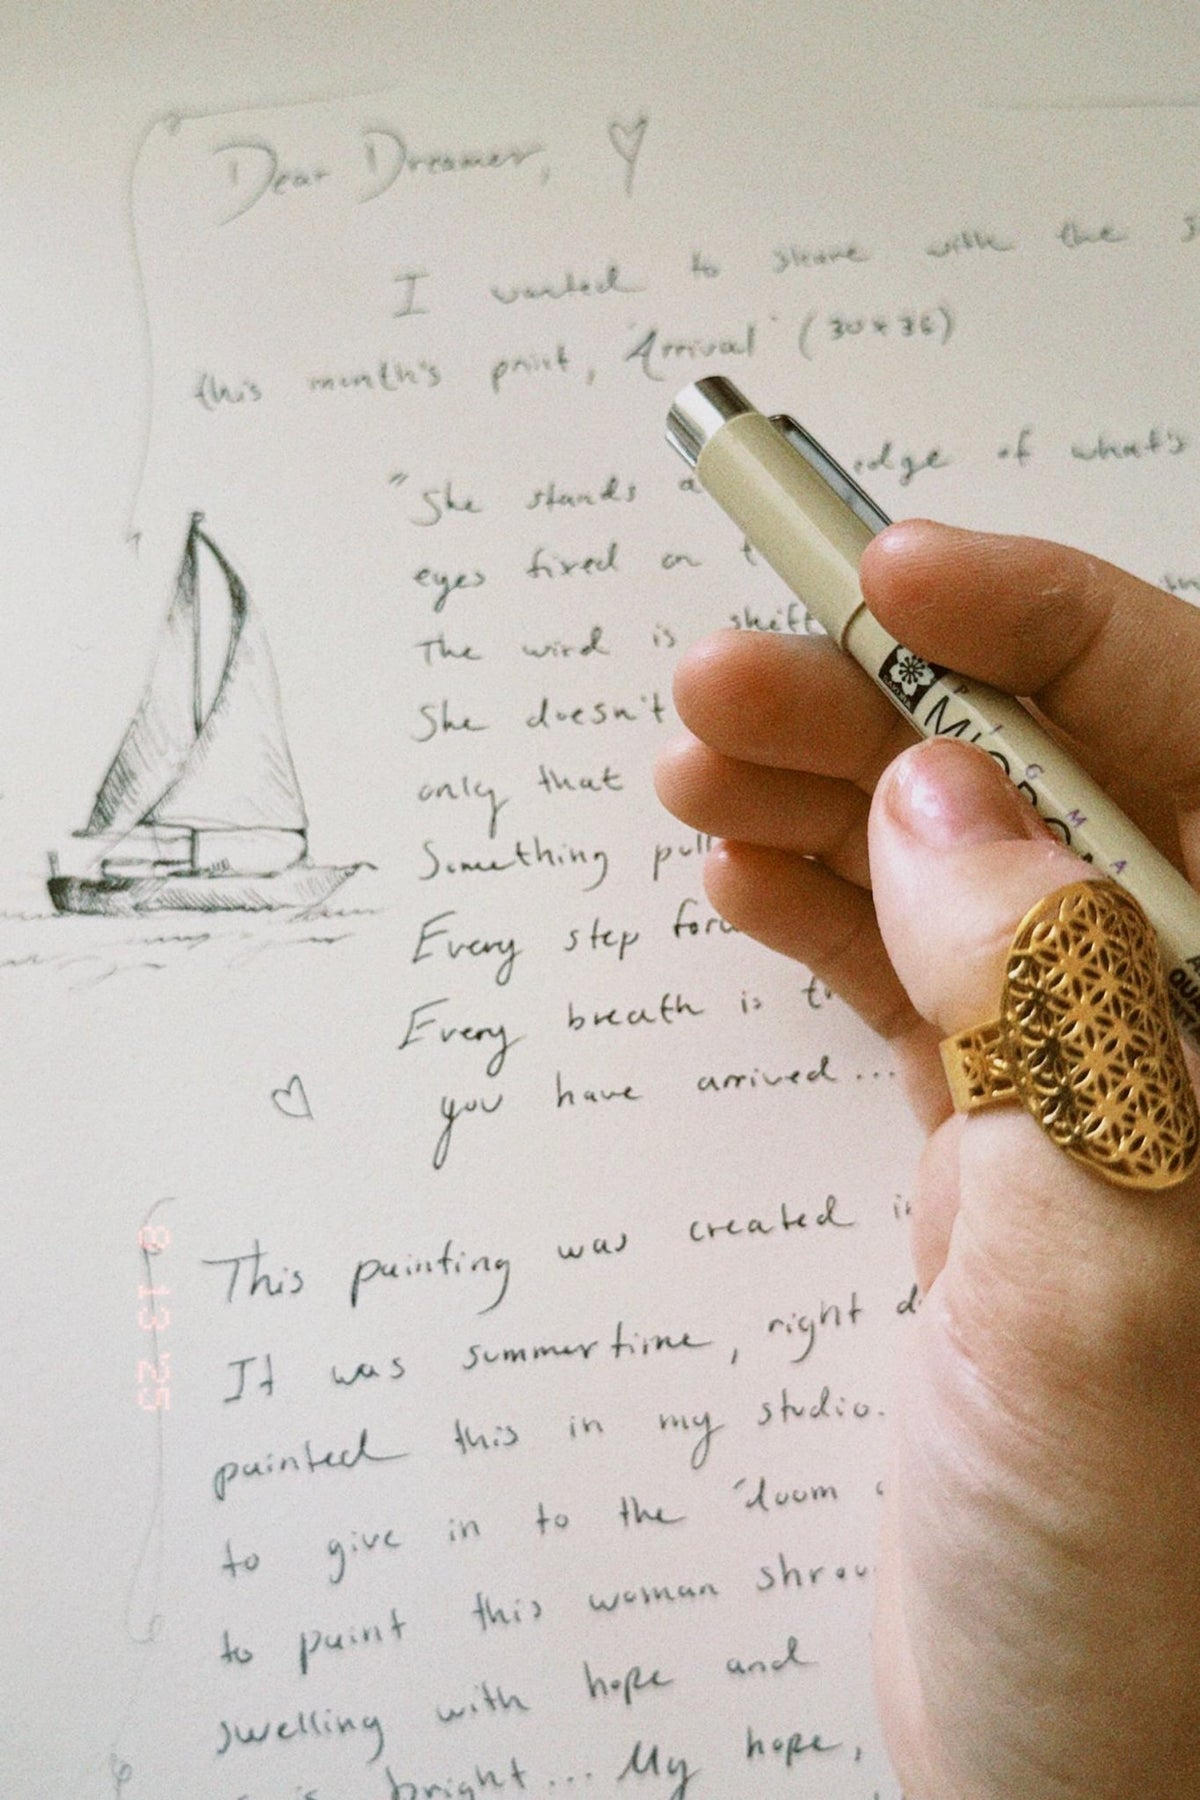 Dear Dreamer,
I wanted to share with the
this month's print, "Arrival" (30x36)
"She stands edge of what's
eyes fixed on
The wind is
She doesn't
only that
Something
Every step
Every breath is
you have arrived...
This painting was created
It was summertime, right
painted this in my studio.
to give in to the "doom
to paint this woman
swelling with hope and
bright... My hope,
8 13 '25
PIGMA
MICRO